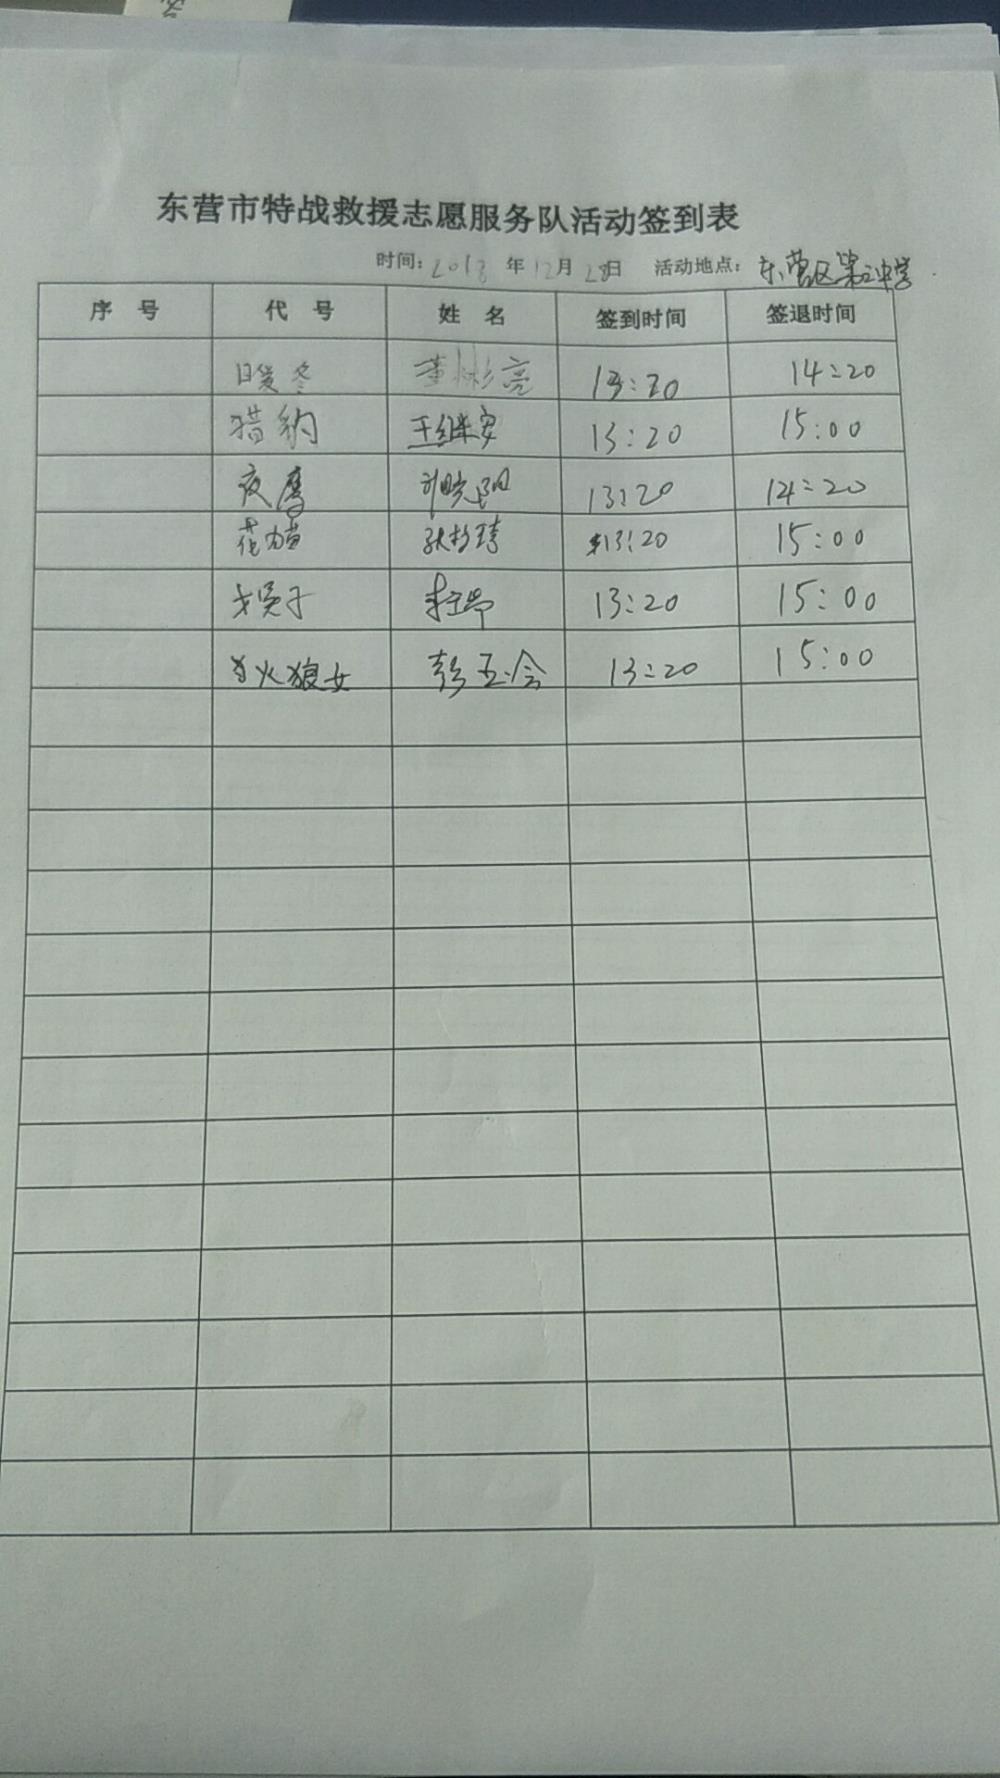 东营市特战救援志愿服务队活动签到表
时间: 2018 年 12 月 28 日 活动地点: 东营区第二中学
序 号 代 号 姓 名 签到时间 签退时间
暖冬 董彬亮 13:20 14:20
猎豹 王继安 13:20 15:00
夜鹰 刘晓阳 13:20 14:20
花猫 13:20 15:00
13:20 15:00
火狼女 彭玉会 13:20 15:00